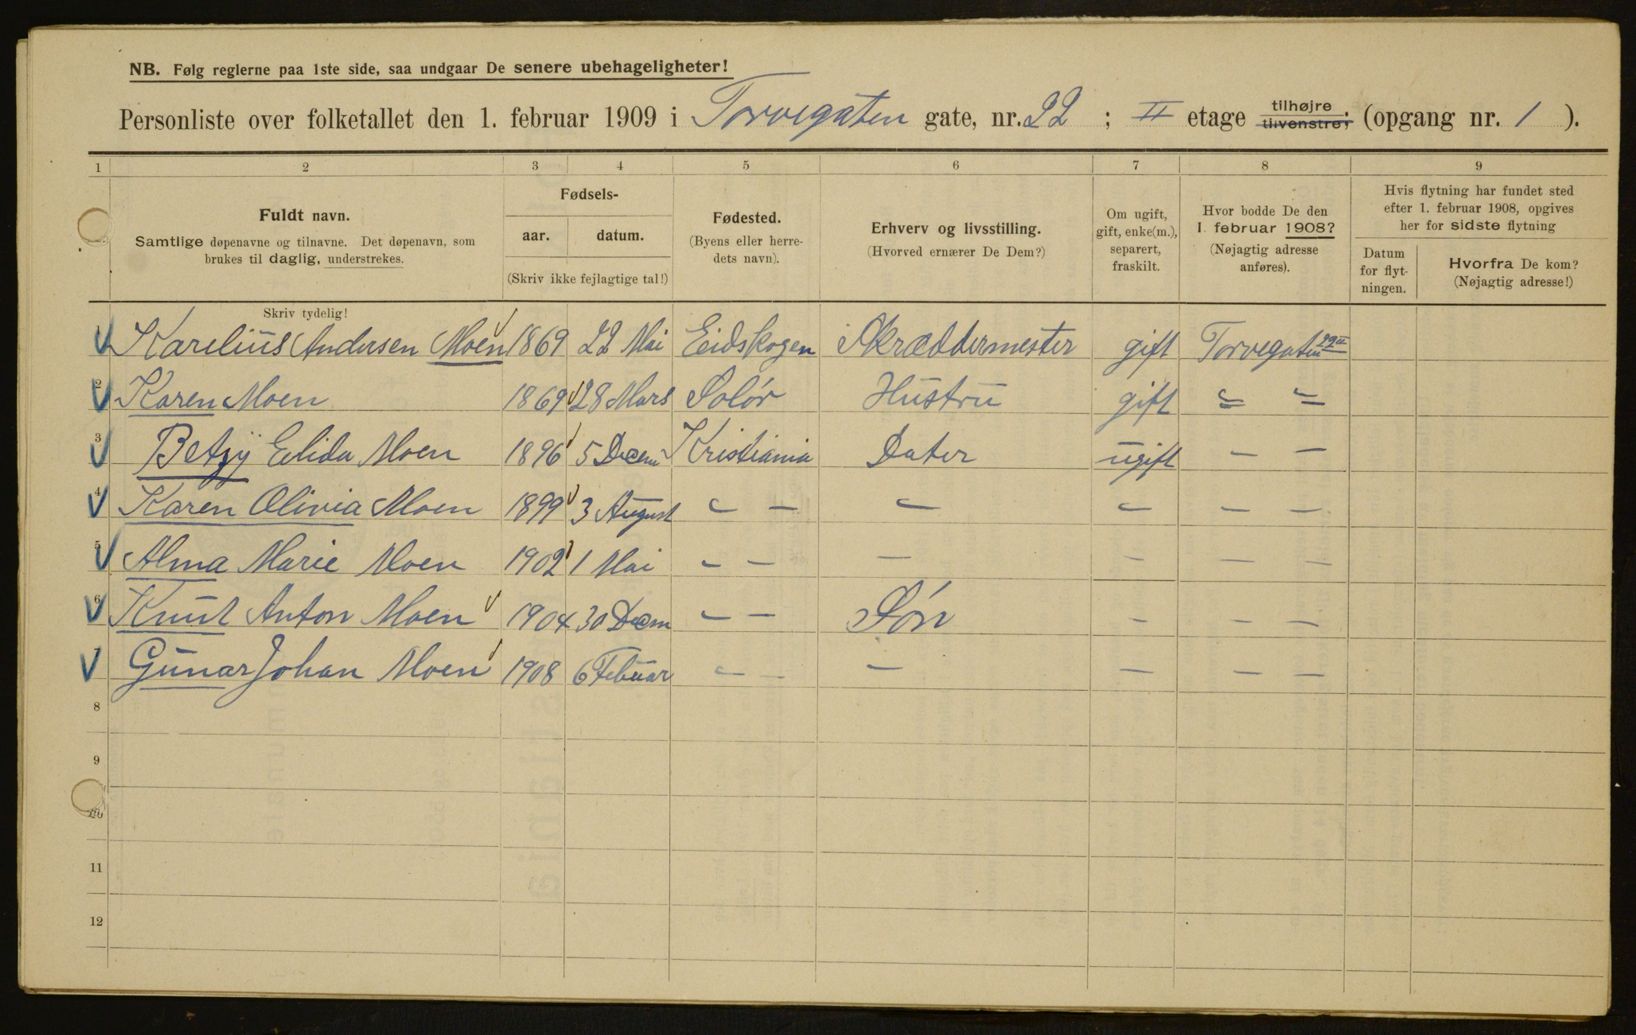 NB. Følg reglerne paa 1ste side, saa undgaar De senere ubehageligheter!
Personliste over folketallet den 1. februar 1909 i Torvegaten gate, nr. 22 ; II etage tilhøjre tilvenstre; (opgang nr. 1 ).
1 2 3 4 5 6 7 8 9
Fuldt navn.
Samtlige døpenavne og tilnavne. Det døpenavn, som
brukes til daglig, understrekes.
Fødsels-
aar. datum.
(Skriv ikke fejlagtige tal!)
Fødested.
(Byens eller herre-
dets navn).
Erhverv og livsstilling.
(Hvorved ernærer De Dem?)
Om ugift,
gift, enke(m.),
separert,
fraskilt.
Hvor bodde De den
1. februar 1908?
(Nøjagtig adresse
anføres).
Hvis flytning har fundet sted
efter 1. februar 1908, opgives
her for sidste flytning
Datum
for flyt-
ningen.
Hvorfra De kom?
(Nøjagtig adresse!)
Skriv tydelig!
1 Karelius Andersen Moen 1869 22 Mai Eidskogen Skræddermester gift Torvegaten 22 II
2 Karen Moen 1869 28 Mars Solør Hustru gift " "
3 Betzy Elida Moen 1896 5 Decem Kristiania Dater ugift — —
4 Karen Olivia Moen 1899 3 August — — — — — —
5 Alma Marie Moen 1902 1 Mai — — — — — —
6 Knut Anton Moen 1904 30 Decm — — Søn — — —
7 Gunar Johan Moen 1908 6 Febuar — — — — — —
8
9
10
11
12